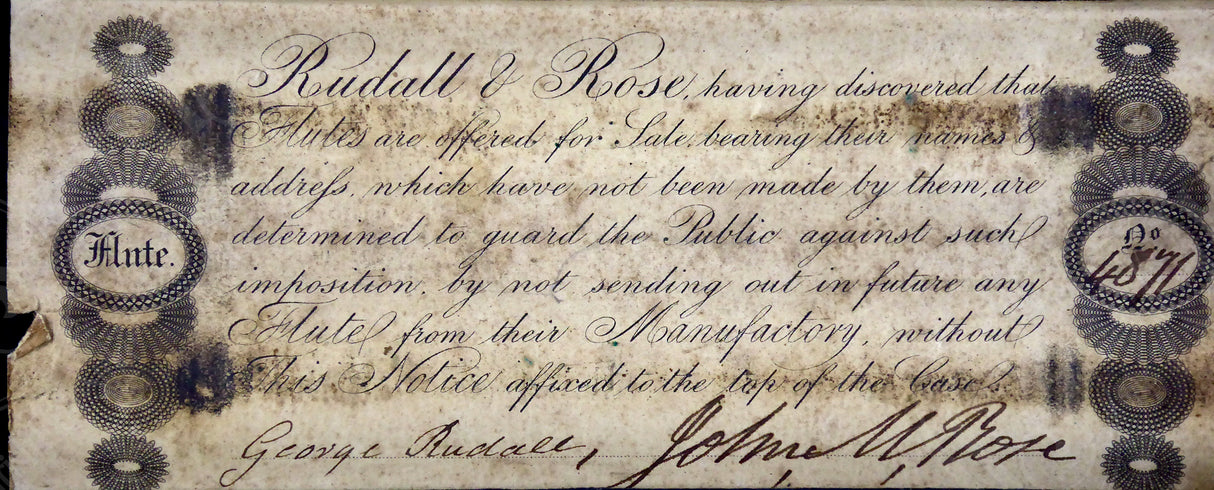 Rudall & Rose, having discovered that
Flutes are offered for Sale, bearing their names &
addreſs, which have not been made by them, are
determined to guard the Public against such
imposition, by not sending out in future any
Flute from their Manufactory, without
This Notice affixed to the top of the Case.
Flute.
No
4871
George Rudall, John M. Rose